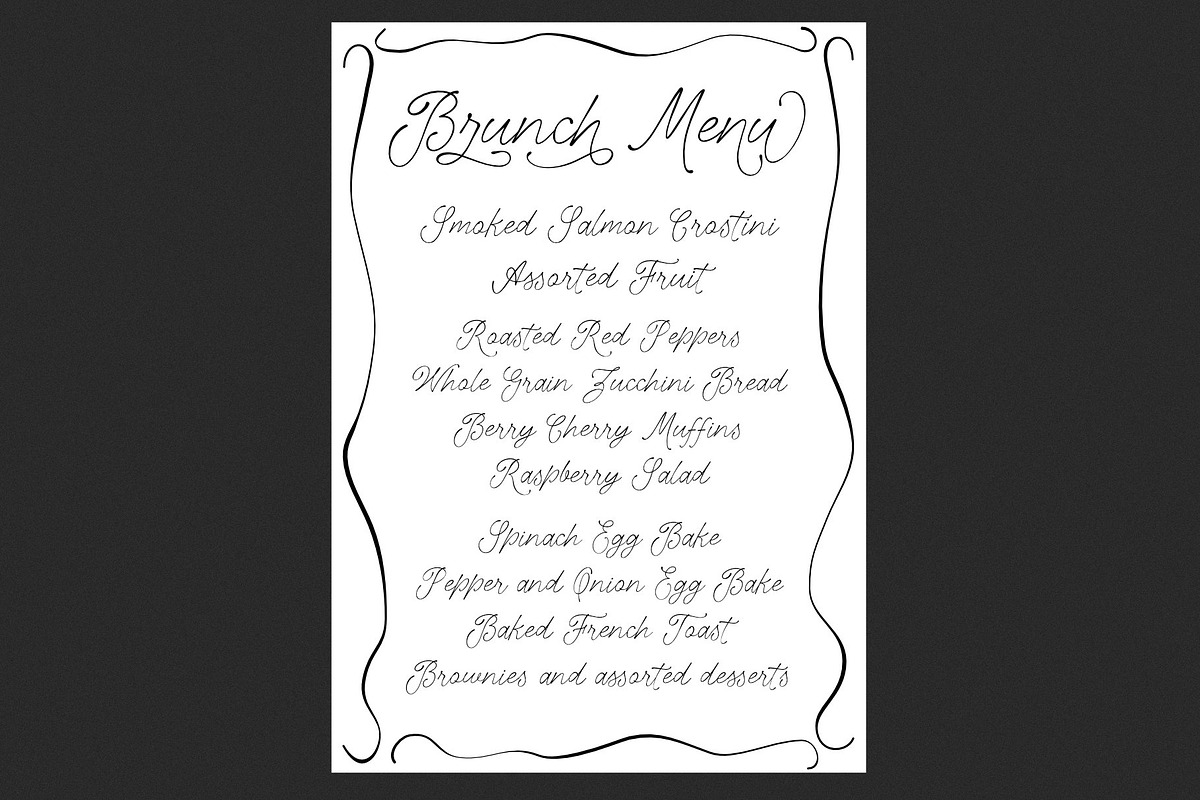 Brunch Menu
Smoked Salmon Crostini
Assorted Fruit
Roasted Red Peppers
Whole Grain Zucchini Bread
Berry Cherry Muffins
Raspberry Salad
Spinach Egg Bake
Pepper and Onion Egg Bake
Baked French Toast
Brownies and assorted desserts